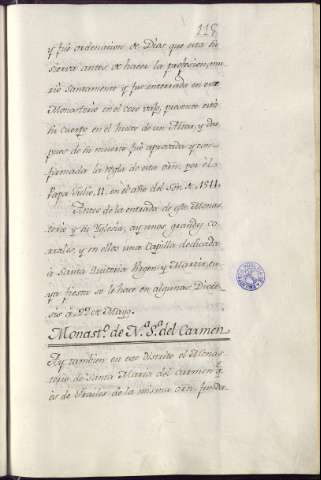 118
y fué ordenacion de Dios que esta su
sierva antes de hacer la profesion, mu
rió santamente y fue enterrada en este
Monasterio en el coro vajo, presente está
su cuerpo en el hueco de un Altar, y des
pues de su muerte fué aprovada y con
firmada la regla de esta orn. por el
Papa Julio II. en el año del Sor. de 1511.
Antes de la entrada de este Monas
terio y su Yglesia, ay unos grandes co
rrales, y en ellos una Capilla dedicada
a Santa Quiteria Virgen y Martir, cu
ya fiesta se le hace en algunas Dioce
sis á 22 de Mayo.
Monastº. de N.ª S.ª del Carmen
Ay tambien en este distrito el Monas
terio de Santa Maria del Carmen q.e
es de Frailes de la misma orn. fundó